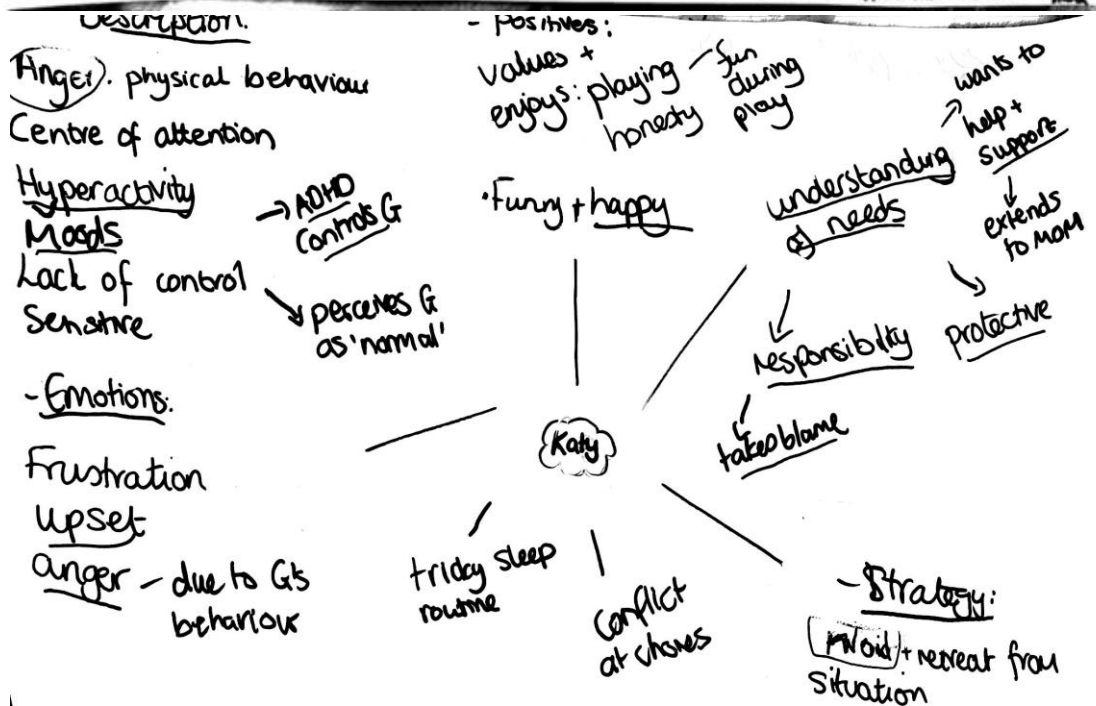 Description:
Anger. physical behaviour
Centre of attention
Hyperactivity
Moods
Lack of control
Sensitive
→ ADHD
controls G
→ perceives G
as 'normal'
- Emotions:
Frustration
upset
anger - due to G's
behaviour
- Positives:
values +
enjoys: playing - fun
during
play
honesty
· Funny + happy
understanding
of needs
wants to
help +
support
extends
to MOM
protective
responsibility
takes blame
Katy
tricky sleep
routine
conflict
at chores
- Strategy:
Avoid + retreat from
situation